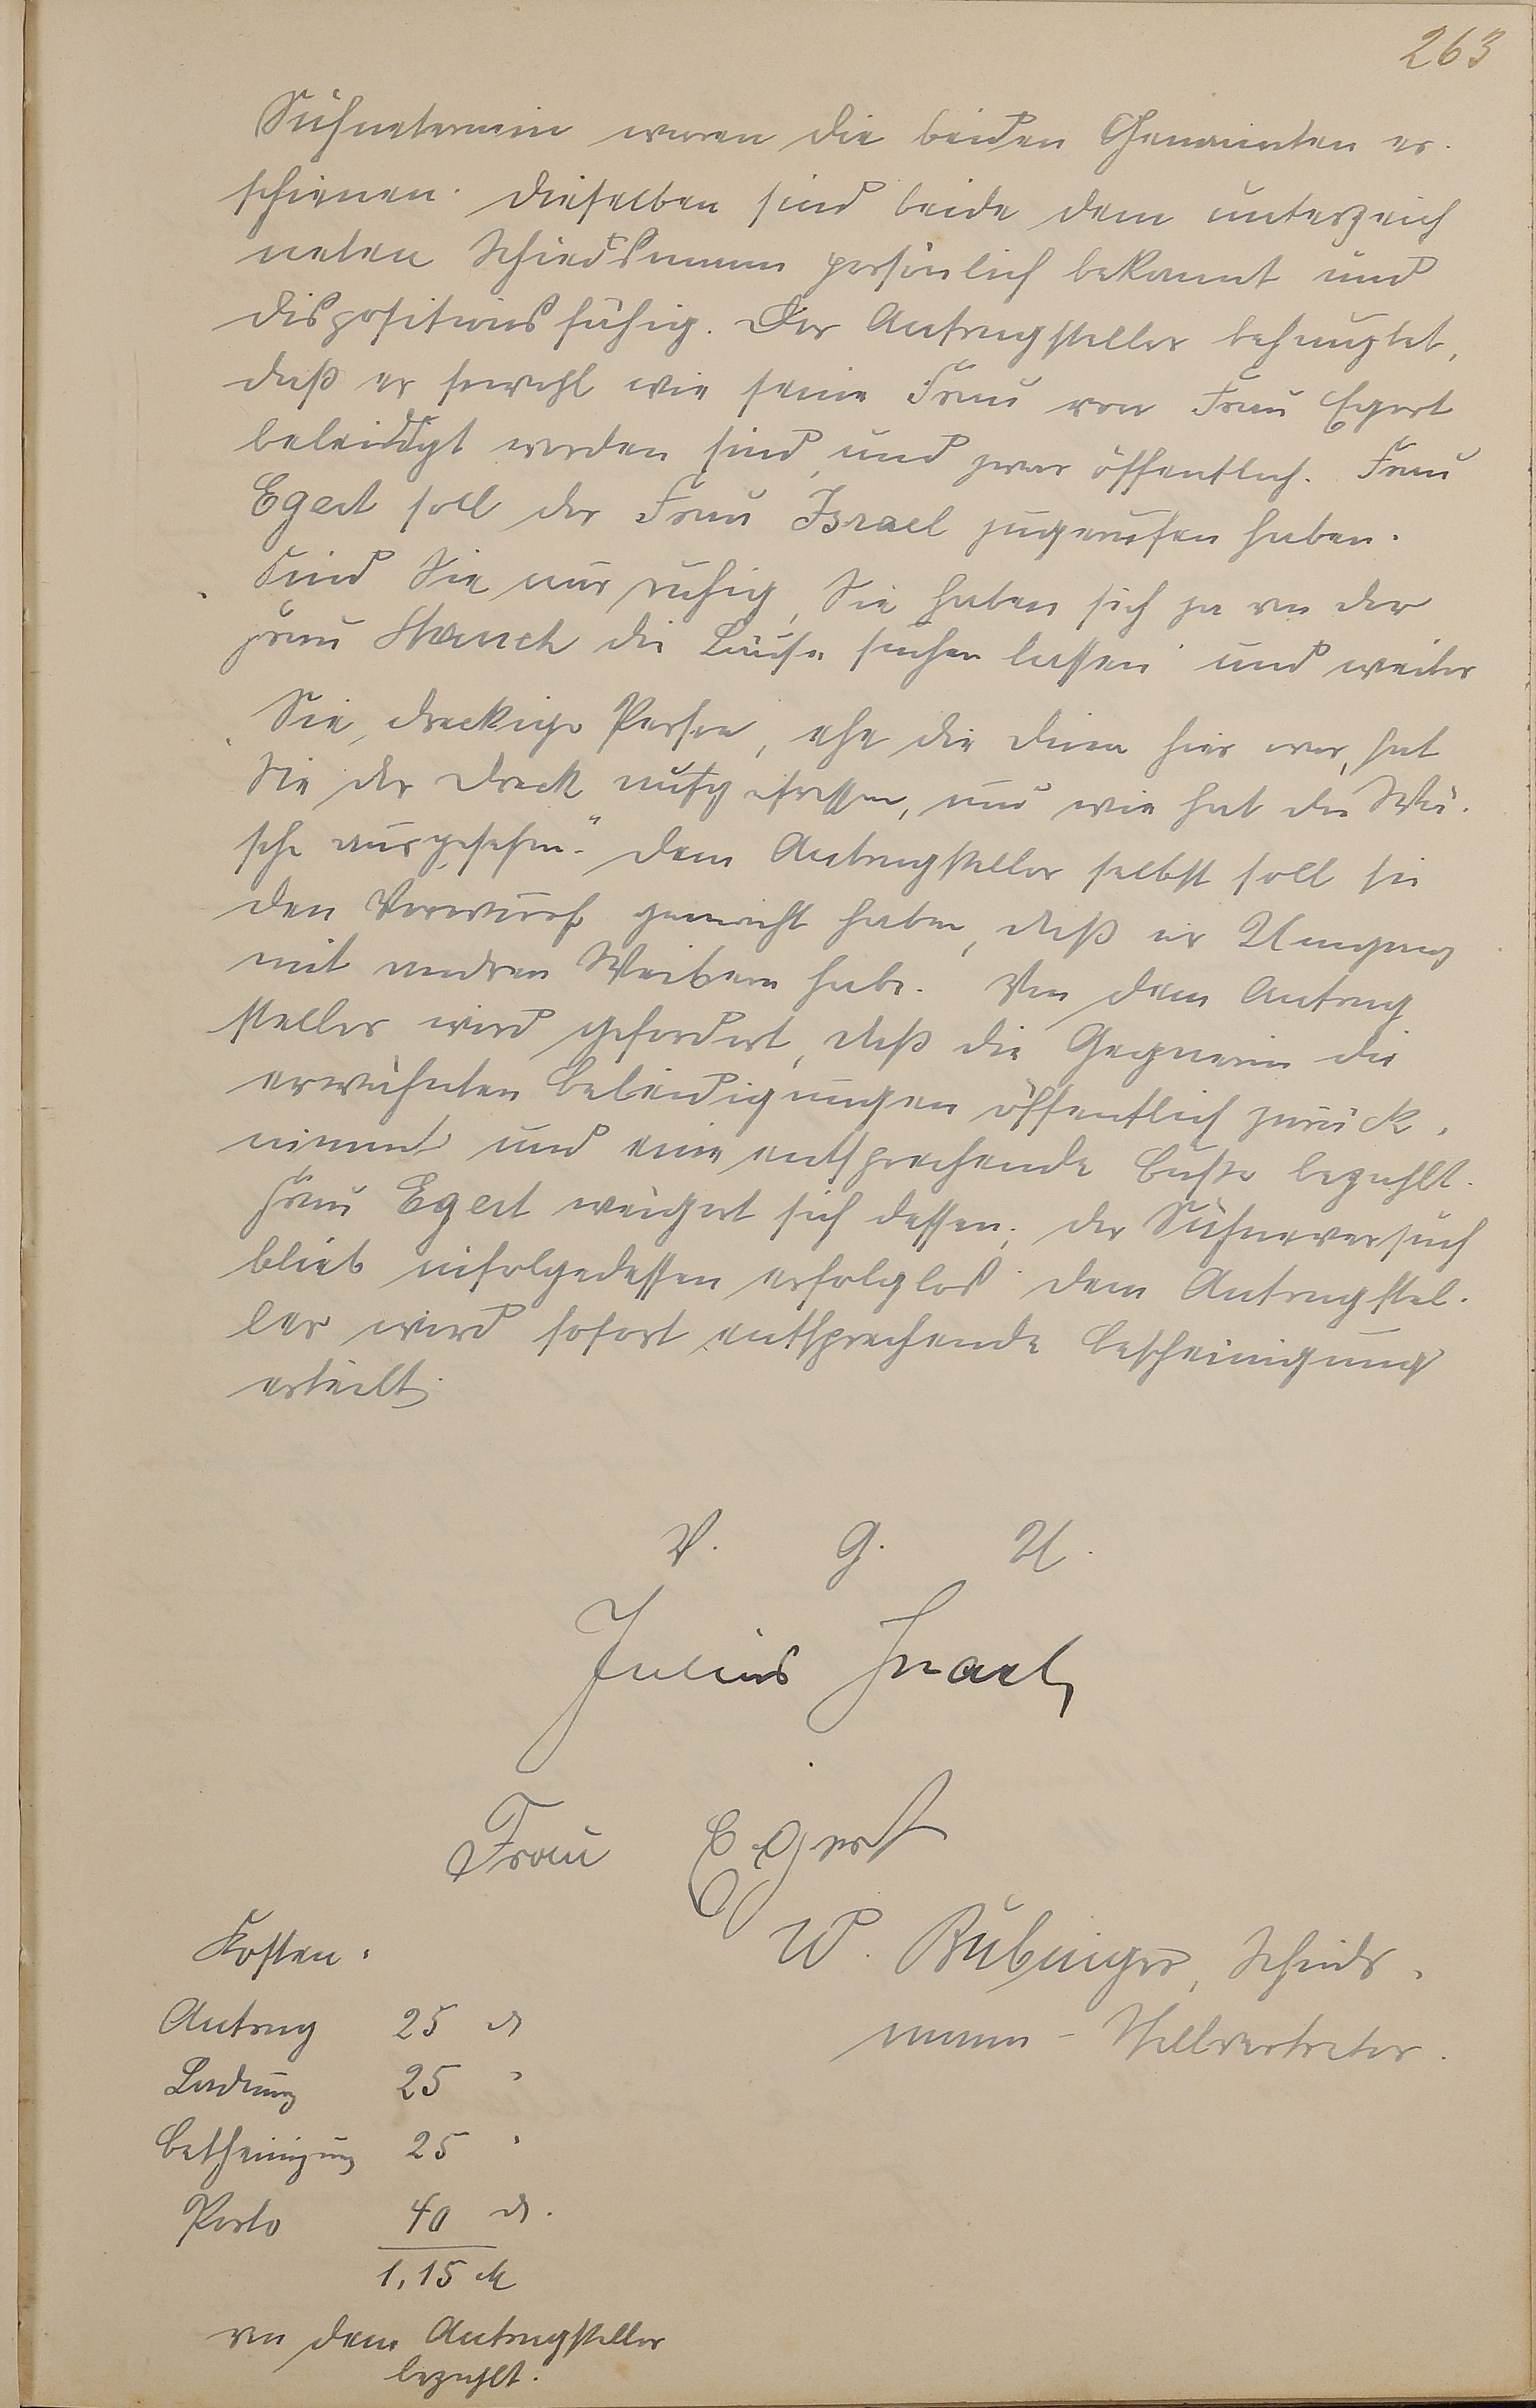 263
Sühnetermin waren die beiden Genannten er-
schienen. Dieselben sind beide dem unterzeich
neten Schiedsmann persönlich bekannt und
dispositionsfähig. Der Antragsteller behauptet,
daß er sowohl wie seine Frau von Frau Egert
beleidigt worden sind, und zwar öffentlich. Frau
Egert soll der Frau Israel zugerufen haben.
„Sind Sie nur ruhig, Sie haben sich ja von der
Frau Stanch die Läuse suchen lassen" und weiter
„Sie, dreckige Person, ehe die Dina hier war, hat
Sie der Dreck aufgefressen, und wie hat die Wä-
sche ausgesehen." Dem Antragsteller selbst soll sie
den Vorwurf gemacht haben, daß er Umgang
mit andren Weibern habe. Von dem Antrag
steller wird gefordert, daß die Gegnerin die
erwähnten Beleidigungen öffentlich zurück-
nimmt und eine entsprechende Buße bezahlt.
Frau Egert weigert sich dessen; der Sühneversuch
blieb infolgedessen erfolglos. Dem Antragstel-
ler wird sofort entsprechende Bescheinigung
erteilt.
V. G. U.
Julius Israel
Frau Egert
W. Bubinger, Schieds-
mann-Stellvertreter.
Kosten:
Antrag 25 ₰
Ladung 25 "
Bescheinigung 25 "
Porto 40 ₰.
1,15 M
von dem Antragsteller
bezahlt.